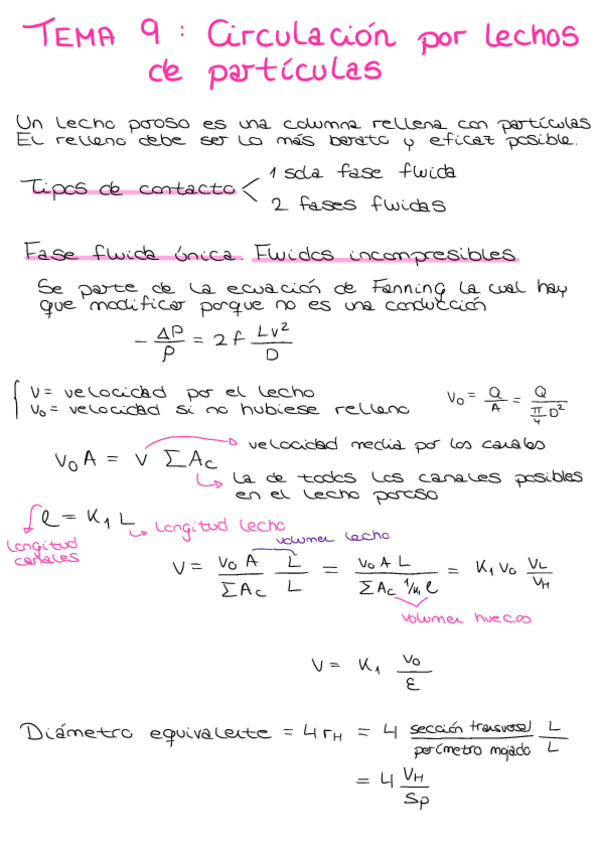 TEMA 9: Circulación por lechos
de partículas
Un lecho poroso es una columna rellena con partículas
El relleno debe ser lo más barato y eficaz posible.
Tipos de contacto < 1 sola fase fluida
2 fases fluidas
Fase fluida única. Fluidos incompresibles
Se parte de la ecuación de Fanning la cual hay
que modificar porque no es una conducción
- ΔP/ρ = 2f Lv²/D
v = velocidad por el lecho
v₀ = velocidad si no hubiese relleno
v₀ = Q/A = Q/(π/4 D²)
v₀ A = v ΣAc
velocidad media por los canales
la de todos los canales posibles
en el lecho poroso
l = K₁ L
longitud lecho
longitud
canales
volumen lecho
v = (v₀ A / ΣAc) (L/L) = v₀ A L / (ΣAc 1/K₁ l) = K₁ v₀ VL/VH
volumen huecos
v = K₁ v₀/ε
Diámetro equivalente = 4 rH = 4 (sección transversal / perímetro mojado) (L/L)
= 4 VH/Sp